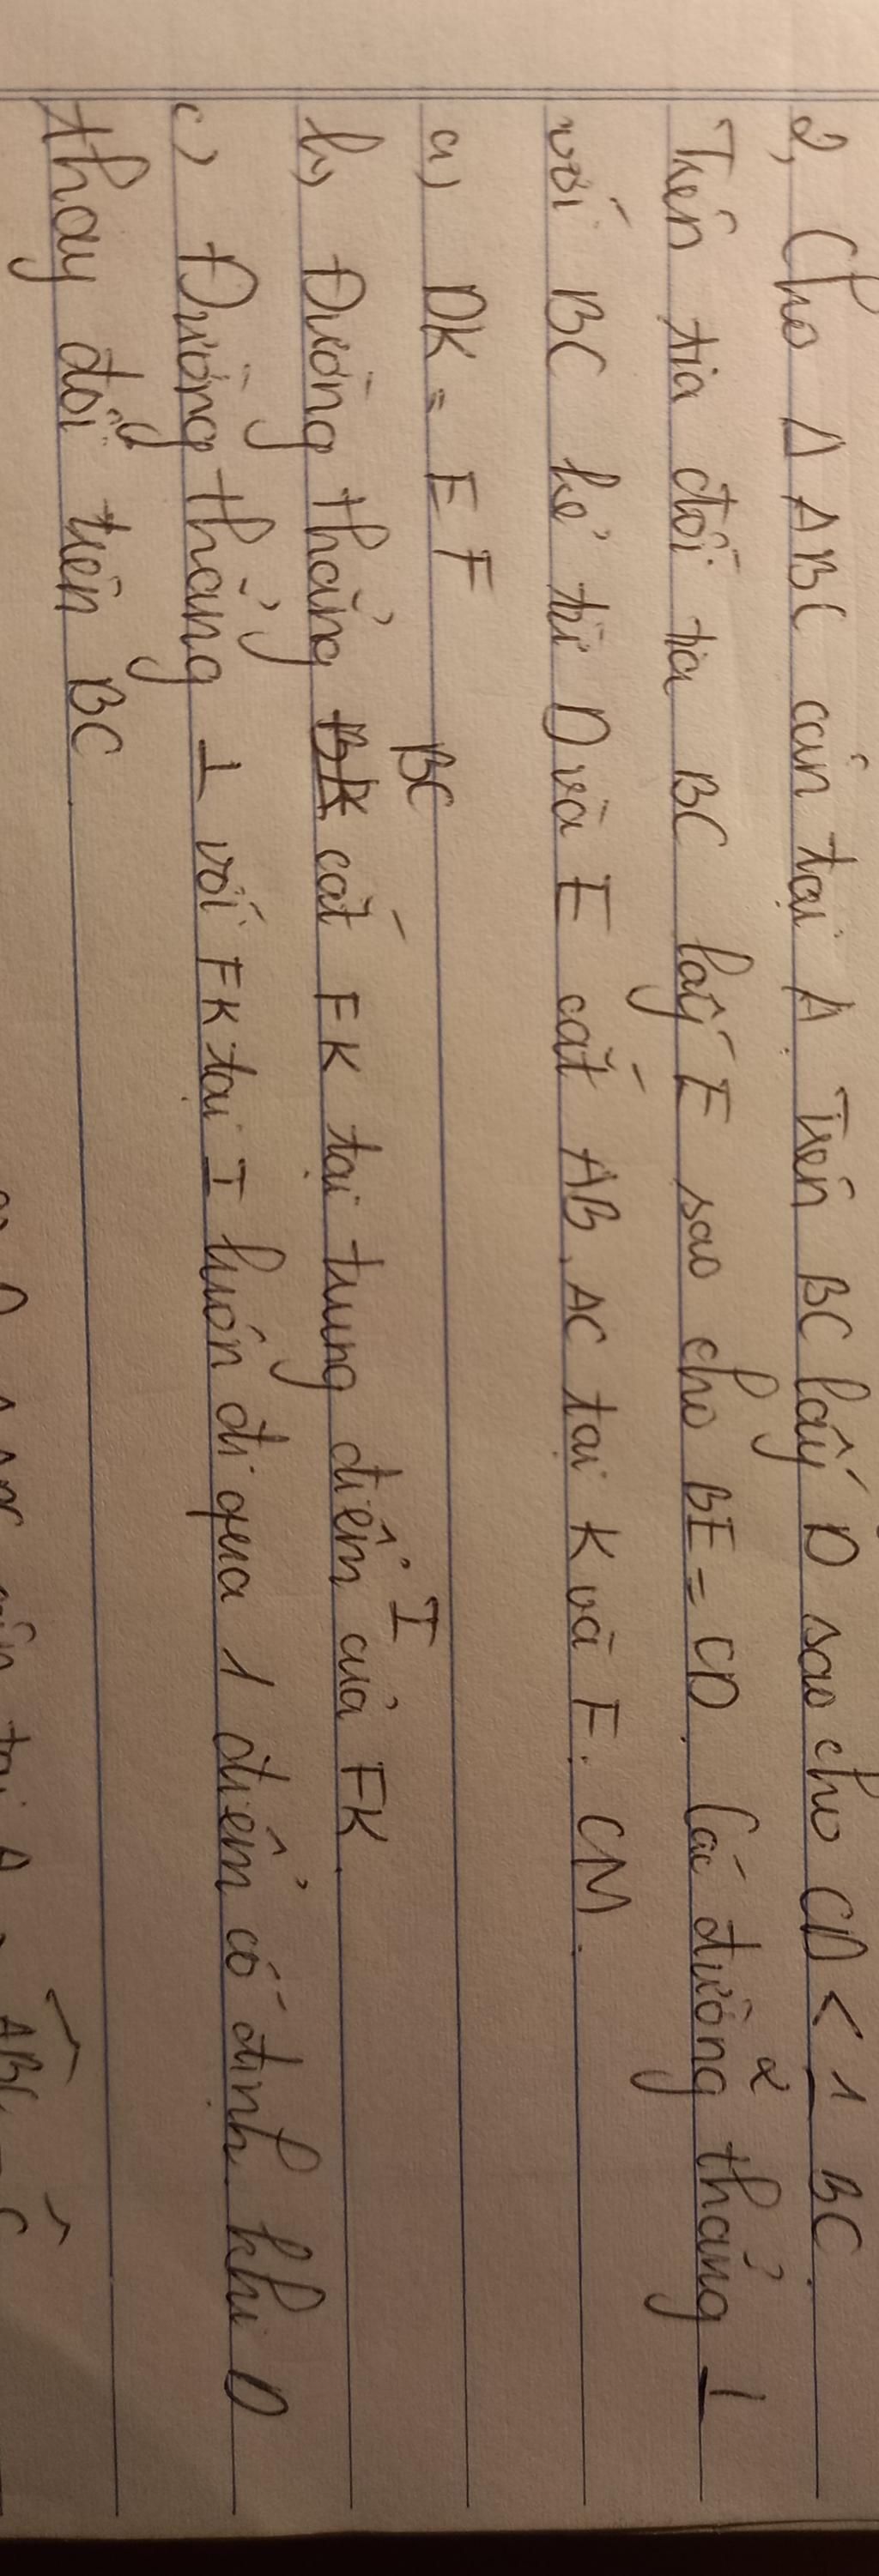 2, Cho Δ ABC cân tại A. Trên BC lấy D sao cho CD < 1/2 BC.
Trên tia đối tia BC lấy E sao cho BE = CD. Các đường thẳng ⊥
với BC kẻ từ D và E cắt AB, AC tại K và F. CM.
a) DK = EF
b) Đường thẳng BC cắt FK tại trung điểm I của FK.
c) Đường thẳng ⊥ với FK tại I luôn đi qua 1 điểm cố định khi D
thay đổi trên BC